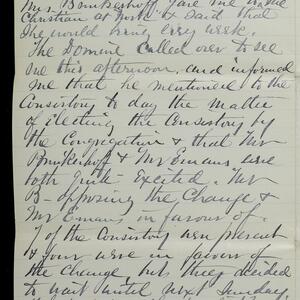 Mrs Brinkerhoff gave me a
Christian at Work & said that
she would bring every week.
The Domine called over to see
me this afternoon, and informed
me that he mentioned to the
Consistory to day the matter
of Electing the Consistory by
the Congregation & that Mr
Brinkerhoff & Mr Emans were
both quite Excited. Mr
B- opposing the Change &
Mr Emans in favour of.
7 of the Consistory were present
& four were in favour of
the Change, but they decided
to wait until next Sunday